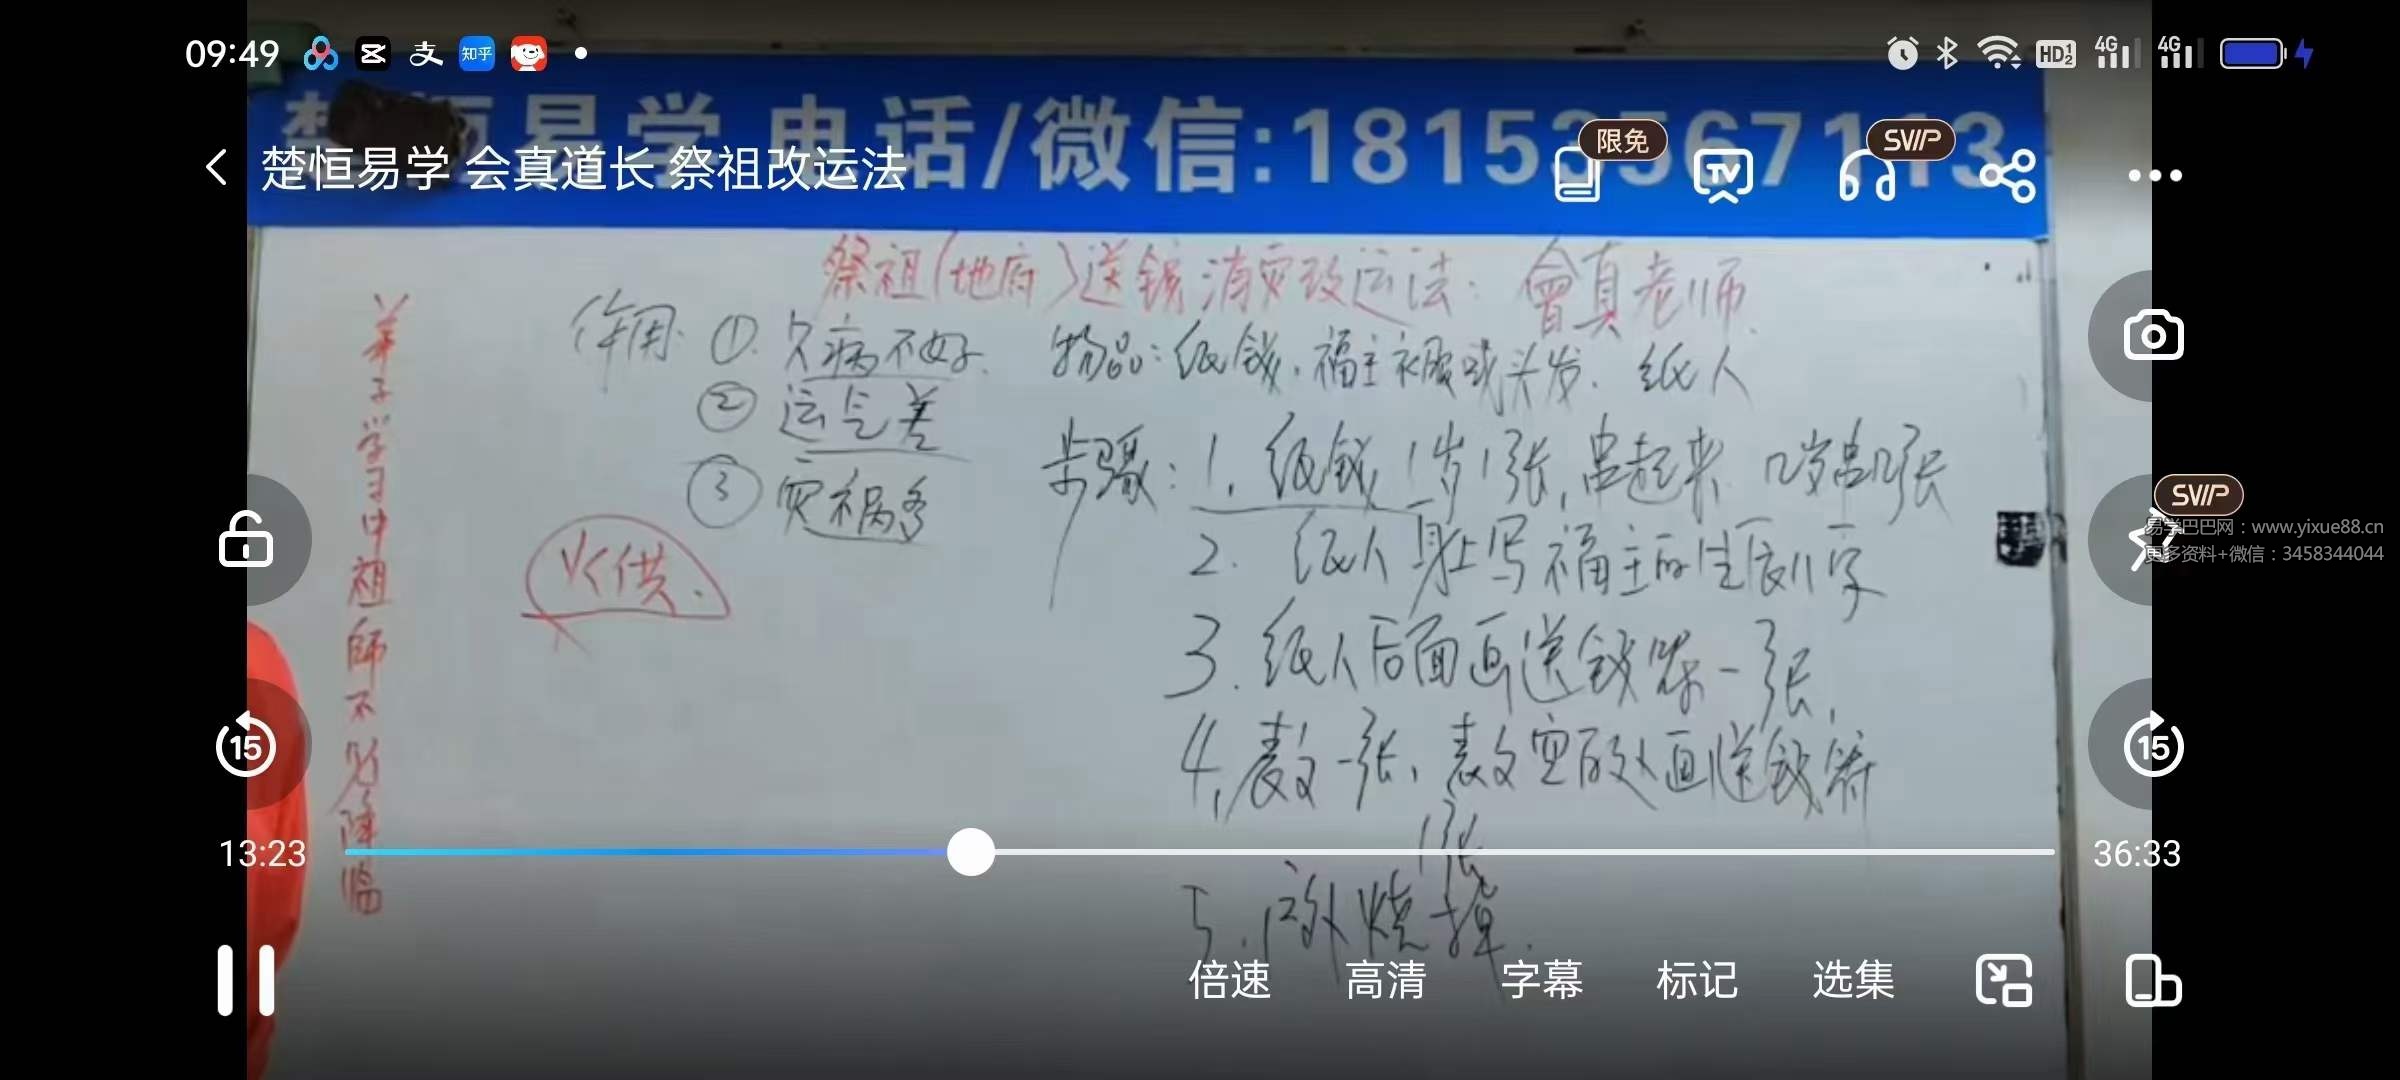 09:49
知乎
HD
4G
4G
恒易学 电话/微信:18153567113
楚恒易学 会真道长 祭祖改运法
限免
TV
SVIP
祭祖(地府)送钱消灾改运法: 會真老师
作用 ① 久病不好.
② 运气差
③ 灾祸多
物品:纸钱,福主衣服或头发. 纸人
步骤:1. 纸钱1岁1张,串起来 几岁串几张
2. 纸人身上写福主的生辰八字
3. 纸人后面画送钱符一张,
4, 表文一张,表文空的处画送钱符
1张
5. 烧掉.
弟子学习中祖師不必降临
SVIP
易学巴巴网:www.yixue88.cn
更多资料+微信:3458344044
15
15
13:23
36:33
倍速
高清
字幕
标记
选集